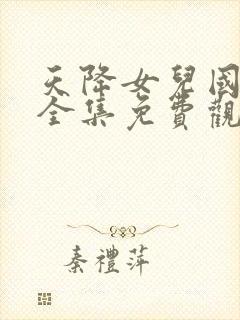 天降女兒國
全集免費觀
秦禮萍